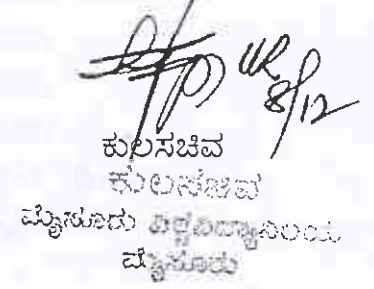 8/12
ಕುಲಸಚಿವ
ಕುಲಸಚಿವ
ಮೈಸೂರು ವಿಶ್ವವಿದ್ಯಾನಿಲಯ
ಮೈಸೂರು